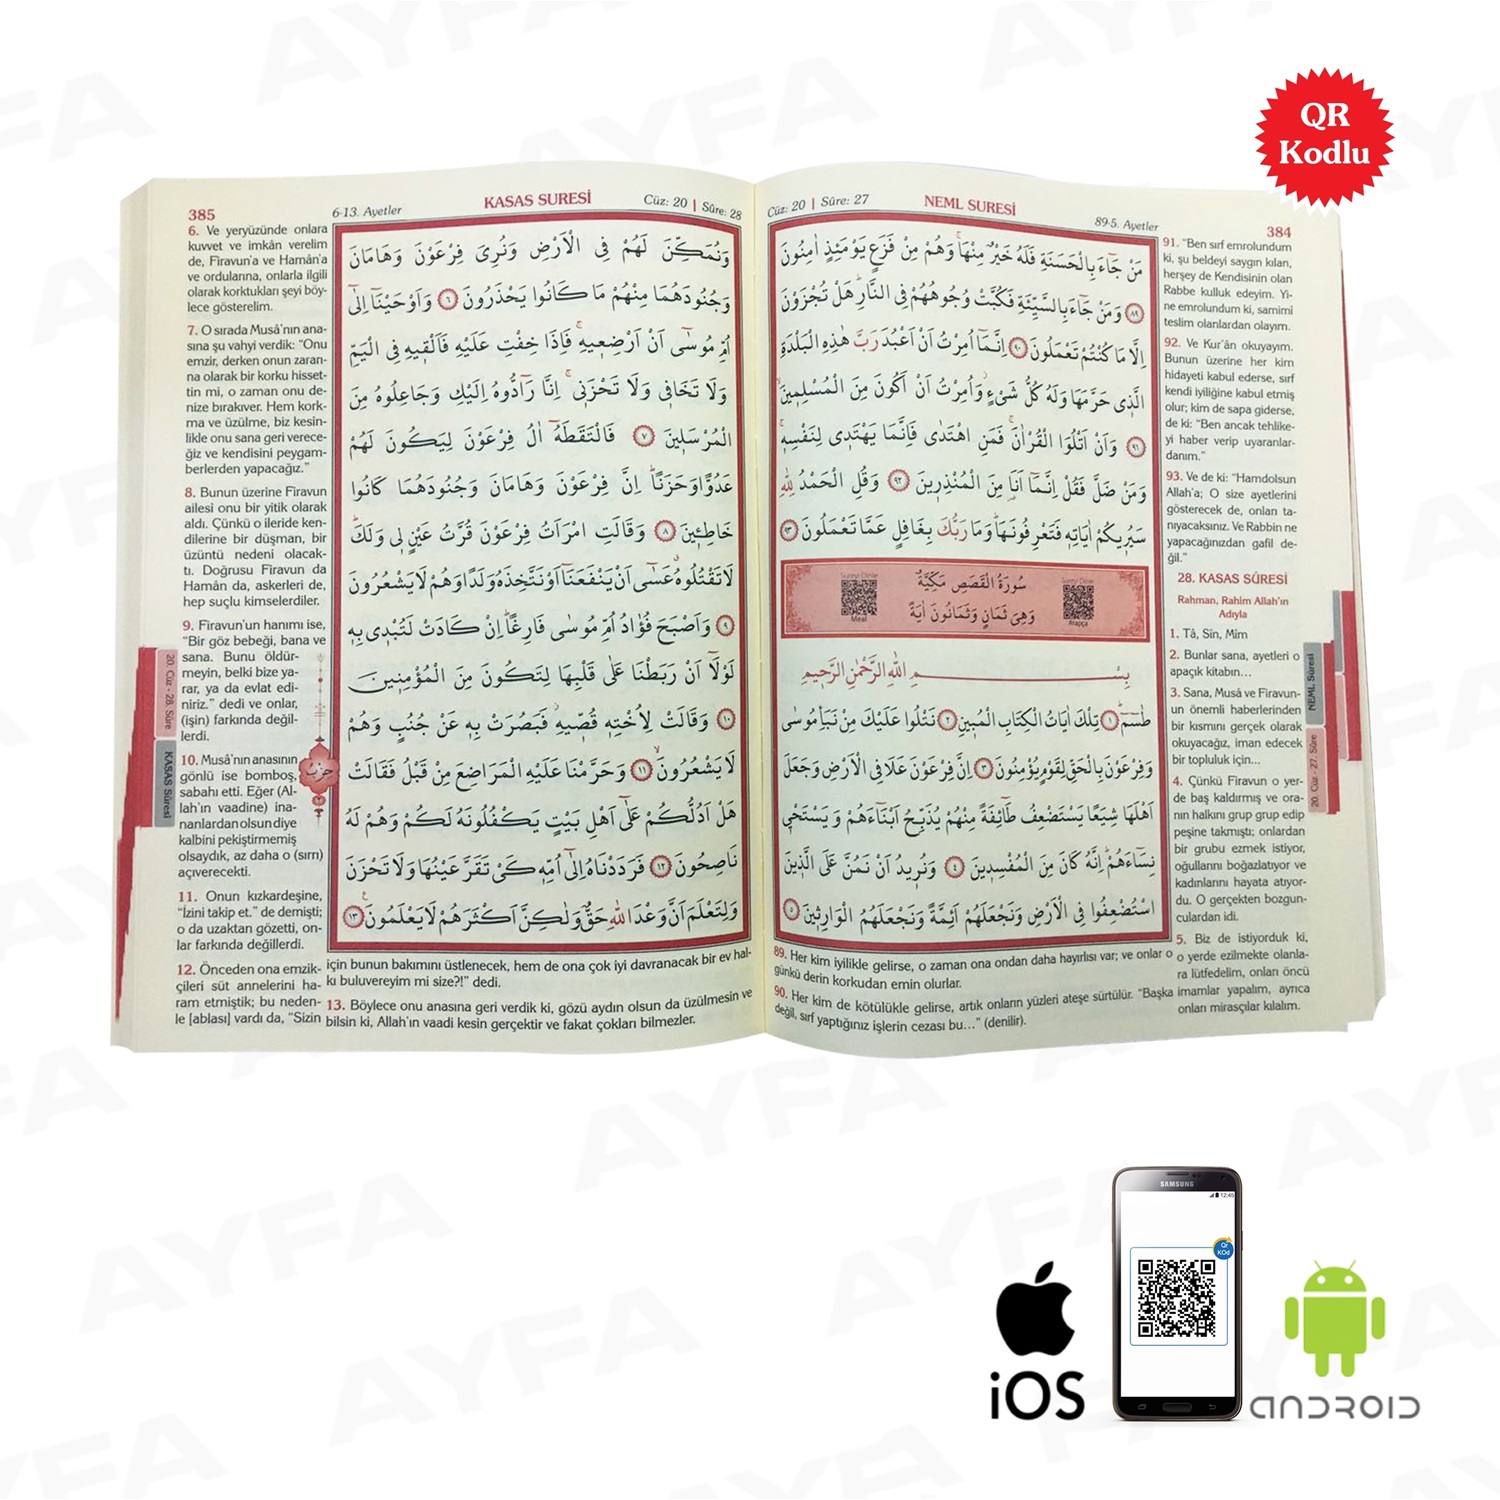 QR
Kodlu
385
6-13. Ayetler
KASAS SURESİ
Cüz: 20 | Sûre: 28
6. Ve yeryüzünde onlara
kuvvet ve imkân verelim
de, Firavun'a ve Hamân'a
ve ordularına, onlarla ilgili
olarak korktukları şeyi böy-
lece gösterelim.
7. O sırada Musâ'nın ana-
sına şu vahyi verdik: "Onu
emzir, derken onun zararı-
na olarak bir korku hisset-
tin mi, o zaman onu de-
nize bırakıver. Hem kork-
ma ve üzülme, biz kesin-
likle onu sana geri verece-
ğiz ve kendisini peygam-
berlerden yapacağız."
8. Bunun üzerine Firavun
ailesi onu bir yitik olarak
aldı. Çünkü o ileride ken-
dilerine bir düşman, bir
üzüntü nedeni olacak-
tı. Doğrusu Firavun da
Hamân da, askerleri de,
hep suçlu kimselerdiler.
9. Firavun'un hanımı ise,
"Bir göz bebeği, bana ve
sana. Bunu öldür-
meyin, belki bize ya-
rar, ya da evlat edi-
niriz." dedi ve onlar,
(işin) farkında değil-
lerdi.
10. Musâ'nın anasının
gönlü ise bomboş,
sabahı etti. Eğer (Al-
lah'ın vaadine) ina-
nanlardan olsun diye
kalbini pekiştirmemiş
olsaydık, az daha o (sırrı)
açıverecekti.
11. Onun kızkardeşine,
"İzini takip et." de demişti;
o da uzaktan gözetti, on-
lar farkında değillerdi.
12. Önceden ona emzik-
çileri süt annelerini ha-
ram etmiştik; bu neden-
le [ablası] vardı da, "Sizin
için bunun bakımını üstlenecek, hem de ona çok iyi davranacak bir ev hal-
kı buluvereyim mi size?!" dedi.
13. Böylece onu anasına geri verdik ki, gözü aydın olsun da üzülmesin ve
bilsin ki, Allah'ın vaadi kesin gerçektir ve fakat çokları bilmezler.
20. Cüz - 28. Sûre
KASAS Sûresi
حزب
وَنُمَكِّنَ لَهُمْ فِى الْاَرْضِ وَنُرِىَ فِرْعَوْنَ وَهَامَانَ
وَجُنُودَهُمَا مِنْهُمْ مَا كَانُوا يَحْذَرُونَ ٦ وَاَوْحَيْنَٓا اِلٰٓى
اُمِّ مُوسٰٓى اَنْ اَرْضِعِيهِۚ فَاِذَا خِفْتِ عَلَيْهِ فَاَلْقِيهِ فِى الْيَمِّ
وَلَا تَخَافِى وَلَا تَحْزَنِىۚ اِنَّا رَٓادُّوهُ اِلَيْكِ وَجَاعِلُوهُ مِنَ
الْمُرْسَلِينَ ٧ فَالْتَقَطَهُٓ اٰلُ فِرْعَوْنَ لِيَكُونَ لَهُمْ
عَدُوًّا وَحَزَنًاۜ اِنَّ فِرْعَوْنَ وَهَامَانَ وَجُنُودَهُمَا كَانُوا
خَاطِـِٔينَ ٨ وَقَالَتِ امْرَاَتُ فِرْعَوْنَ قُرَّتُ عَيْنٍ لِى وَلَكَۜ
لَا تَقْتُلُوهُۗ عَسٰٓى اَنْ يَنْفَعَنَٓا اَوْ نَتَّخِذَهُ وَلَدًا وَهُمْ لَا يَشْعُرُونَ
٩ وَاَصْبَحَ فُؤٰادُ اُمِّ مُوسٰى فَارِغًاۜ اِنْ كَادَتْ لَتُبْدِى بِهِ
لَوْلَٓا اَنْ رَبَطْنَا عَلٰى قَلْبِهَا لِتَكُونَ مِنَ الْمُؤْمِنِينَ
١٠ وَقَالَتْ لِاُخْتِهِ قُصِّيهِۘ فَبَصُرَتْ بِهِ عَنْ جُنُبٍ وَهُمْ
لَا يَشْعُرُونَۙ ١١ وَحَرَّمْنَا عَلَيْهِ الْمَرَاضِعَ مِنْ قَبْلُ فَقَالَتْ
هَلْ اَدُلُّكُمْ عَلٰٓى اَهْلِ بَيْتٍ يَكْفُلُونَهُ لَكُمْ وَهُمْ لَهُ
نَاصِحُونَ ١٢ فَرَدَدْنَاهُ اِلٰٓى اُمِّهِ كَىْ تَقَرَّ عَيْنُهَا وَلَا تَحْزَنَ
وَلِتَعْلَمَ اَنَّ وَعْدَ اللّٰهِ حَقٌّ وَلٰكِنَّ اَكْثَرَهُمْ لَا يَعْلَمُونَ۟ ١٣
Cüz: 20 | Sûre: 27
NEML SURESİ
89-5. Ayetler
384
مَنْ جَٓاءَ بِالْحَسَنَةِ فَلَهُ خَيْرٌ مِنْهَاۚ وَهُمْ مِنْ فَزَعٍ يَوْمَئِذٍ اٰمِنُونَ
٨٩ وَمَنْ جَٓاءَ بِالسَّيِّئَةِ فَكُبَّتْ وُجُوهُهُمْ فِى النَّارِۜ هَلْ تُجْزَوْنَ
اِلَّا مَا كُنْتُمْ تَعْمَلُونَ ٩٠ اِنَّمَٓا اُمِرْتُ اَنْ اَعْبُدَ رَبَّ هٰذِهِ الْبَلْدَةِ
الَّذِى حَرَّمَهَا وَلَهُ كُلُّ شَىْءٍۘ وَاُمِرْتُ اَنْ اَكُونَ مِنَ الْمُسْلِمِينَۙ
٩١ وَاَنْ اَتْلُوَا الْقُرْاٰنَۚ فَمَنِ اهْتَدٰى فَاِنَّمَا يَهْتَدِى لِنَفْسِهِۚ
وَمَنْ ضَلَّ فَقُلْ اِنَّمَٓا اَنَا۬ مِنَ الْمُنْذِرِينَ ٩٢ وَقُلِ الْحَمْدُ لِلّٰهِ
سَيُرِيكُمْ اٰيَاتِهِ فَتَعْرِفُونَهَاۜ وَمَا رَبُّكَ بِغَافِلٍ عَمَّا تَعْمَلُونَ ٩٣
Meal
سُورَةُ الْقَصَصِ مَكِّيَّةٌ
وَهِىَ ثَمَانٍ وَثَمَانُونَ اٰيَةً
Arapça
بِسْمِ اللّٰهِ الرَّحْمٰنِ الرَّحِيمِ
طٰسٓمٓ ١ تِلْكَ اٰيَاتُ الْكِتَابِ الْمُبِينِ ٢ نَتْلُوا عَلَيْكَ مِنْ نَبَأِ مُوسٰى
وَفِرْعَوْنَ بِالْحَقِّ لِقَوْمٍ يُؤْمِنُونَ ٣ اِنَّ فِرْعَوْنَ عَلَا فِى الْاَرْضِ وَجَعَلَ
اَهْلَهَا شِيَعًا يَسْتَضْعِفُ طَٓائِفَةً مِنْهُمْ يُذَبِّحُ اَبْنَٓاءَهُمْ وَيَسْتَحْيِ
نِسَٓاءَهُمْۜ اِنَّهُ كَانَ مِنَ الْمُفْسِدِينَ ٤ وَنُرِيدُ اَنْ نَمُنَّ عَلَى الَّذِينَ
اسْتُضْعِفُوا فِى الْاَرْضِ وَنَجْعَلَهُمْ اَئِمَّةً وَنَجْعَلَهُمُ الْوَارِثِينَۙ ٥
91. "Ben sırf emrolundum
ki, şu beldeyi saygın kılan,
herşey de Kendisinin olan
Rabbe kulluk edeyim. Yi-
ne emrolundum ki, samimi
teslim olanlardan olayım.
92. Ve Kur'ân okuyayım.
Bunun üzerine her kim
hidayeti kabul ederse, sırf
kendi iyiliğine kabul etmiş
olur; kim de sapa giderse,
de ki: "Ben ancak tehlike-
yi haber verip uyaranlar-
danım."
93. Ve de ki: "Hamdolsun
Allah'a; O size ayetlerini
gösterecek de, onları ta-
nıyacaksınız. Ve Rabbin ne
yapacağınızdan gafil de-
ğil."
28. KASAS SÛRESİ
Rahman, Rahim Allah'ın
Adıyla
1. Tâ, Sîn, Mîm
2. Bunlar sana, ayetleri o
apaçık kitabın...
3. Sana, Musâ ve Firavun-
un önemli haberlerinden
bir kısmını gerçek olarak
okuyacağız, iman edecek
bir topluluk için...
4. Çünkü Firavun o yer-
de baş kaldırmış ve ora-
nın halkını grup grup edip
peşine takmıştı; onlardan
bir grubu ezmek istiyor,
oğullarını boğazlatıyor ve
kadınlarını hayata atıyor-
du. O gerçekten bozgun-
culardan idi.
5. Biz de istiyorduk ki,
o yerde ezilmekte olanla-
ra lütfedelim, onları öncü
imamlar yapalım, ayrıca
onları mirasçılar kılalım.
89. Her kim iyilikle gelirse, o zaman ona ondan daha hayırlısı var; ve onlar o
günkü derin korkudan emin olurlar.
90. Her kim de kötülükle gelirse, artık onların yüzleri ateşe sürtülür. "Başka
değil, sırf yaptığınız işlerin cezası bu..." (denilir).
NEML Sûresi
20. Cüz - 27. Sûre
SAMSUNG
12:45
Qr
KOd
iOS
ANDROID
AYFA